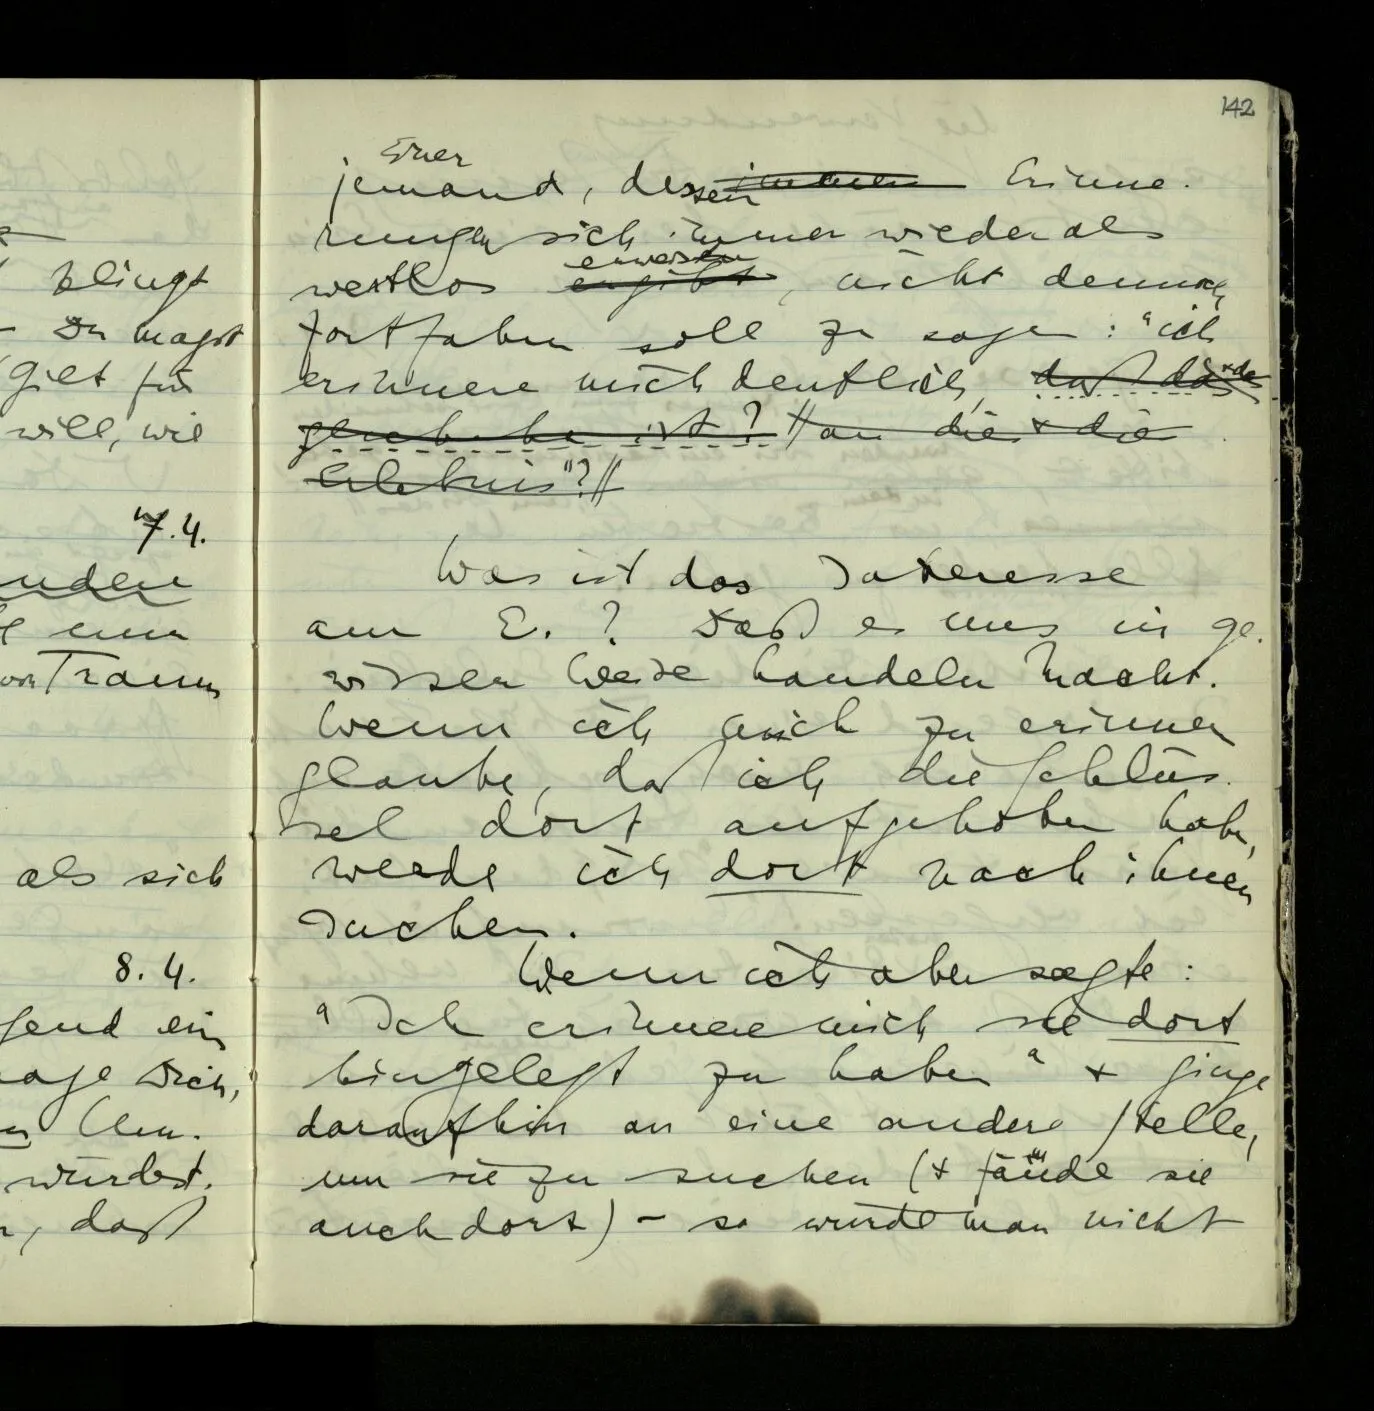 klingt
Du magst
gilt für
will, wie
7.4.
nun
von Traum
als sich
8.4.
ein
Dich,
würdest.
, daß
142
Einer
jemand, dessen immer Erinne-
rungen sich immer wieder als
wertlos ergibt erweisen, nicht dennoch
fortfahren soll zu sagen: "ich
erinnere mich deutlich, daß das & das
geschehen ist? // an die & die
Erlebnis"? //
Was ist das Interesse
am E.? Daß es uns in ge-
wisser Weise handeln macht.
Wenn ich mich zu erinnern
glaube, daß ich die Schlüs-
sel dort aufgehoben habe,
werde ich dort nach ihnen
suchen.
Wenn ich aber sagte:
"Ich erinnere mich sie dort
hingelegt zu haben" & ginge
daraufhin an eine andere Stelle,
um sie zu suchen (& fände sie
auch dort) – so würde man nicht